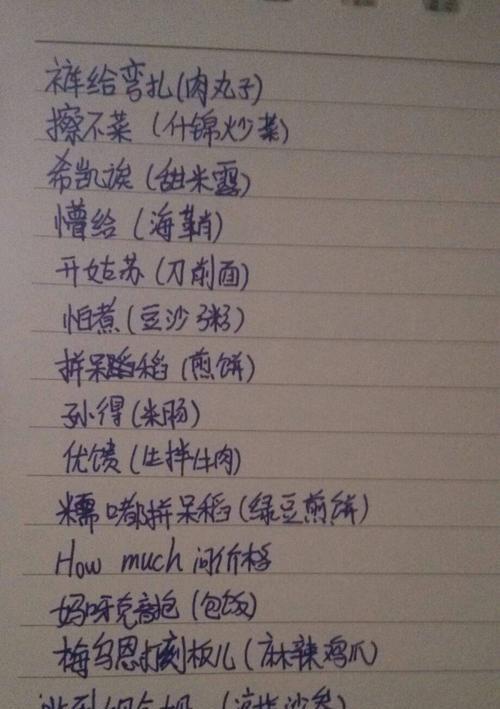 裤给弯扎(肉丸子)
擦不菜(什锦炒菜)
希凯诶(甜米露)
懵给(海鞘)
开姑苏(刀削面)
怕煮(豆沙粥)
拼呆稻(煎饼)
孙得(米肠)
优馈(生拌牛肉)
糯嘟拼呆稻(绿豆煎饼)
How much 问价格
妈呀克抱(包饭)
梅乌恩打刻板儿(麻辣鸡爪)
(凉拌沙参)